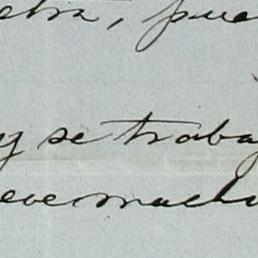 etra, pue
y se trabaj
eve mucho